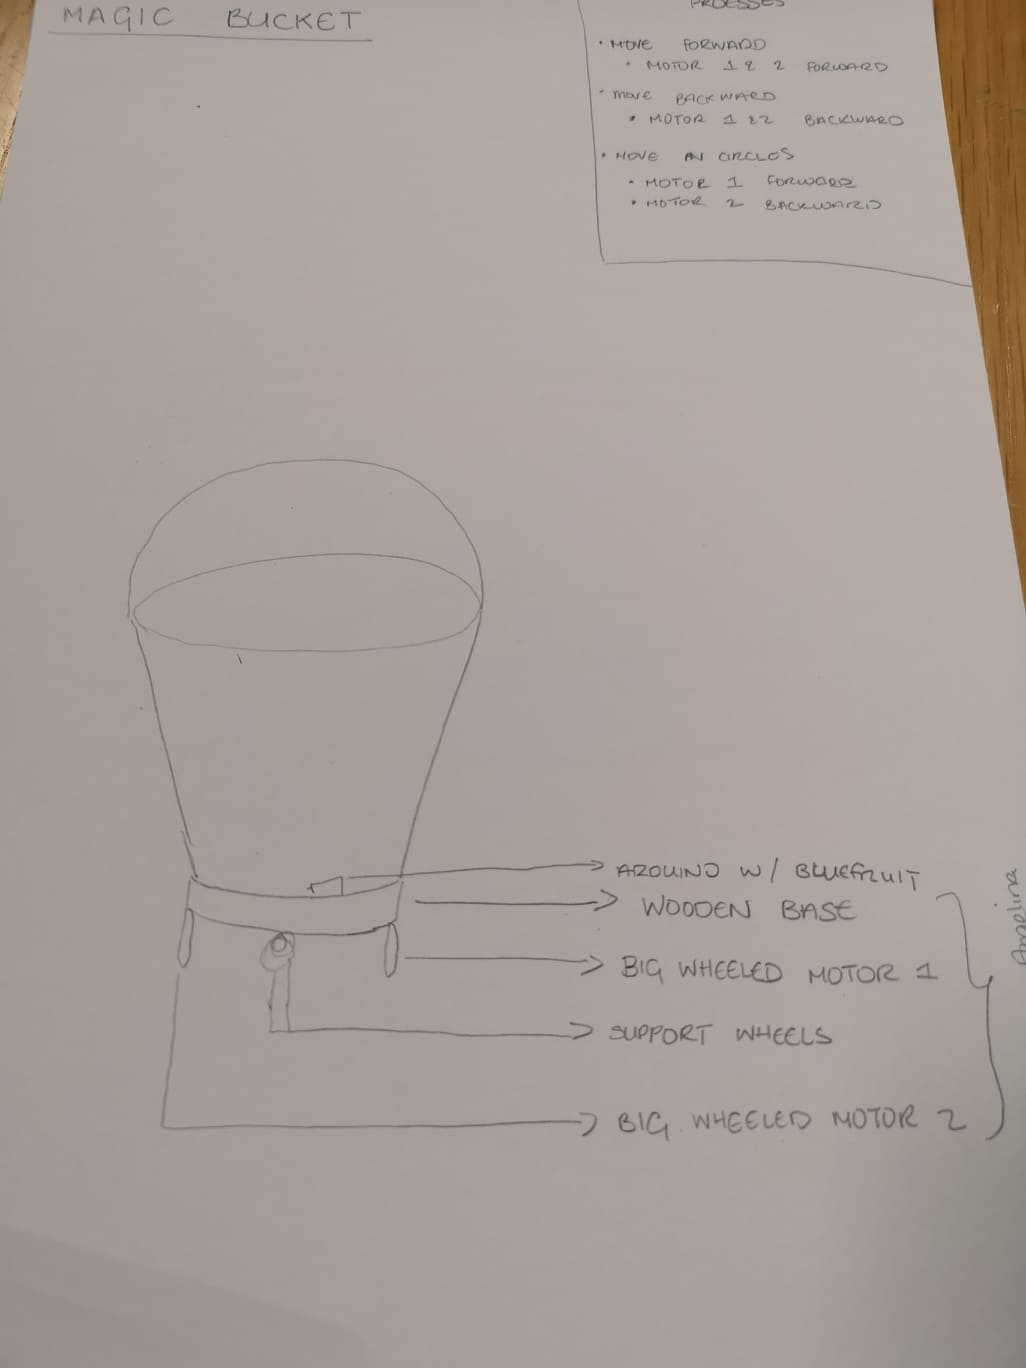 MAGIC BUCKET
PROESSES
• MOVE FORWARD
• MOTOR 1 & 2 FORWARD
• move BACKWARD
• MOTOR 1 & 2 BACKWARD
• MOVE IN CIRCLES
• MOTOR 1 FORWARD
• MOTOR 2 BACKWARD
ARDUINO W/ BLUEFRUIT
WOODEN BASE
BIG WHEELED MOTOR 1
SUPPORT WHEELS
BIG WHEELED MOTOR 2
Angelina